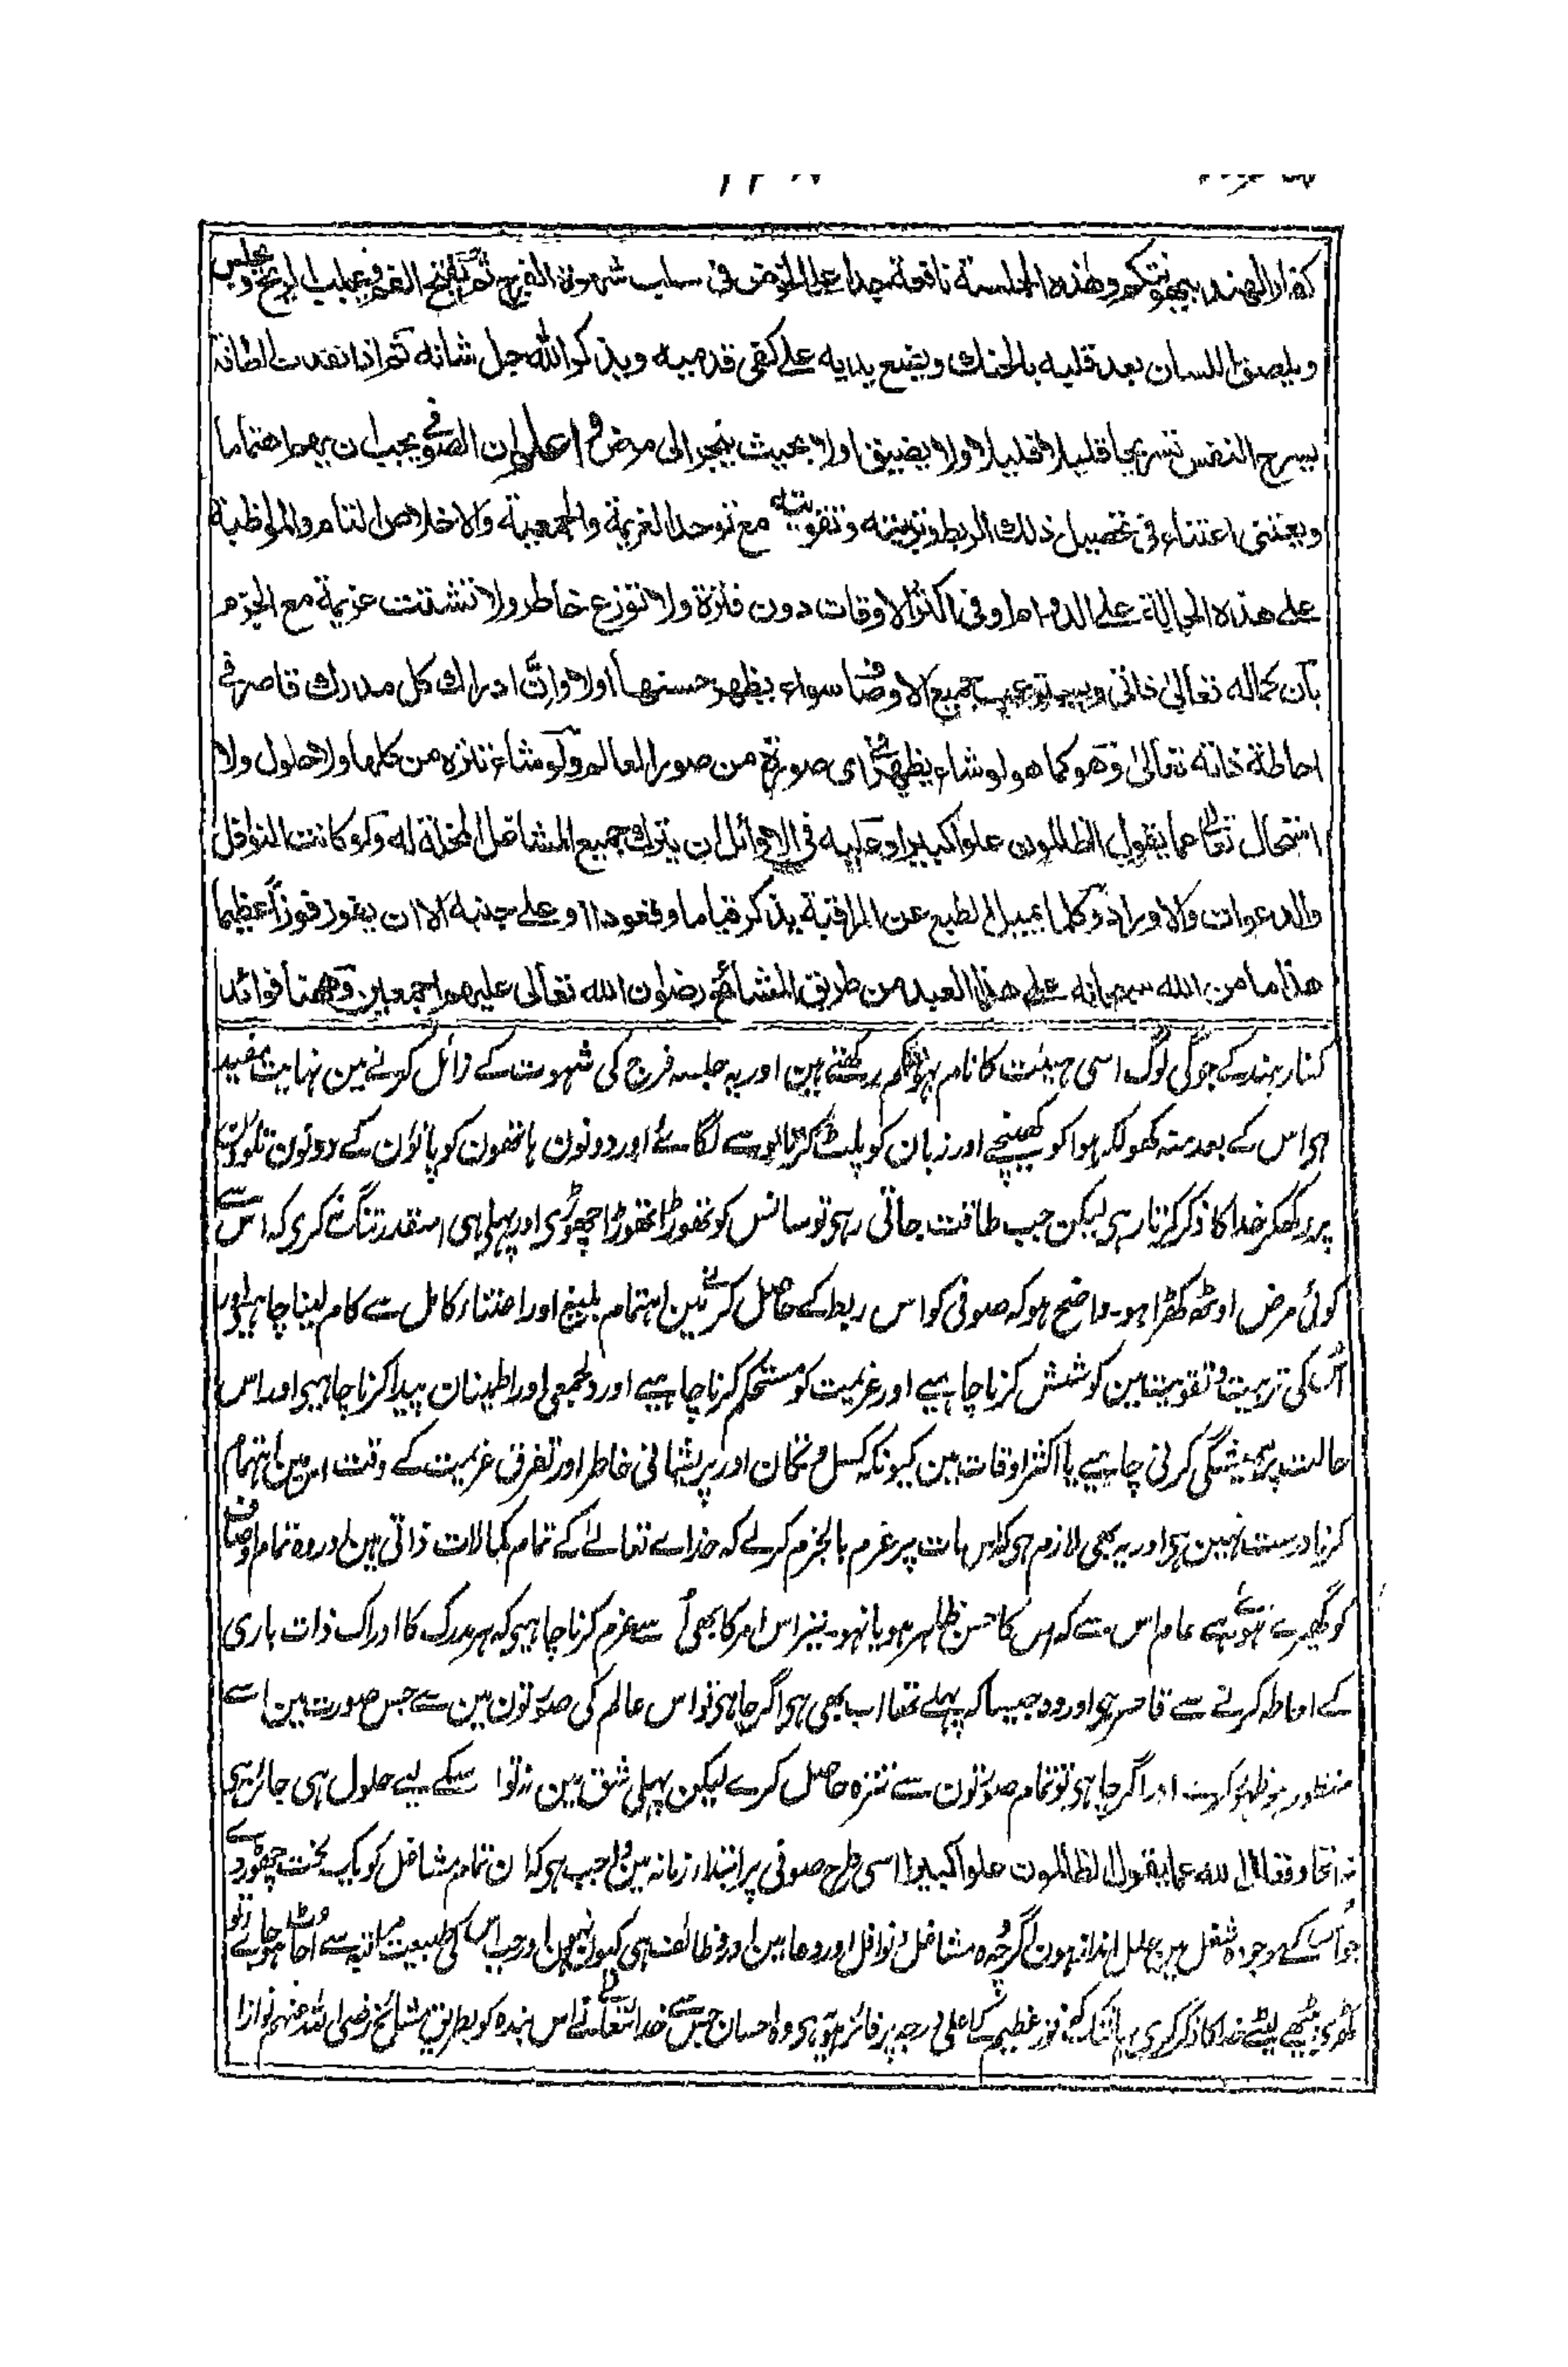 كفار الهند وهذه الجلسة نافعة جدا على المؤمن فى سلب شهوة الفرج ثم يفتح الفم ويجلس
ويلصق اللسان بعد قلبه بالحنك ويضع يديه على كفى قدميه ويذكر الله جل شانه ثم اذا نفدت الطاقة
يسرح النفس تسريحا قليلا قليلا ولا يضيق اولا بحيث ينجر الى مرض واعلم ان الصوفى يجب ان يهم اهتماما
ويعتنى اعتناء فى تحصيل ذلك الربط وتربيته وتقويته مع توحد العزيمة والجمعية والاخلاص التام والمواظبة
على هذه الحالة على الدوام او فى اكثر الاوقات دون فترة ولا توزع خاطر ولا تشتت عزيمة مع الجزم
بان كماله تعالى ذاتى جميع الاوصاف سواء يظهر حسنها اولا وان ادراك كل مدرك قاصر فى
احاطة ذاته تعالى وهو كما هو لو شاء يظهر فى اى صورة من صور العالم ولو شاء تنزه من كلها ولا حلول ولا
انتحال تعالى عما يقول الظالمون علوا كبيرا وعليه فى الاوائل ان يترك جميع المشاغل المخلة له ولو كانت النوافل
والدعوات والاوراد وكلما يميل الطبع عن المراقبة يذكر قياما وقعودا وعلى جنبه الا ان يفوز فوزا عظيما
هذا ما من الله سبحانه على هذا العبد من طريق المشائخ رضوان الله تعالى عليهم اجمعين وههنا فوائد
كفار ہند کے جوگی لوگ اسی ہیئت کا نام رکھتے ہین اور یہ جلسہ فرج کی شہوت کے زائل کرنے مین نہایت مفید
ہی اس کے بعد منہ کھولکر ہوا کو کھینچے اور زبان کو پلٹ کر تالو سے لگائے اور دونون ہاتھون کو پانؤن کے دونون تلوون
پر رکھکر خدا کا ذکر کرتا رہی لیکن جب طاقت جاتی رہی تو سانس کو تھوڑا تھوڑا چھوڑی اور پہلی ہی اسقدر تنگ نہ کری کہ اس سے
کوئی مرض اوٹھ کھڑا ہو۔ واضح ہو کہ صوفی کو اس ربط کے حاصل کرنے مین اہتمام بلیغ اور اعتناء کامل سے کام لینا چاہیے اور
اُس کی تربیت و تقویت مین کوشش کرنا چاہیے اور عزیمت کو مستحکم کرنا چاہیے اور دلجمعی اور اطمینان پیدا کرنا چاہیے اور اس
حالت پر ہمیشگی کرنی چاہیے یا اکثر اوقات مین کیونکہ کسل و تکان اور پریشانی خاطر اور تفرق عزیمت کے وقت اس مین اہتمام
کرنا درست نہین ہی اور یہ بھی لازم ہی کہ اس بات پر عزم بالجزم کرلے کہ خداے تعالےٰ کے تمام کمالات ذاتی ہین اور وہ تمام اوصاف
کو گھیرے ہوئے ہے عام اس سے کہ اس کا حسن ظاہر ہو یا نہو۔ نیز اس امر کا بھی اُسے عزم کرنا چاہیے کہ ہر مدرک کا ادراک ذات باری
کے احاطہ کرنے سے قاصر ہی اور وہ جیسا کہ پہلے تھا اب بھی ہی اگر چاہی تو اس عالم کی صورتون مین سے جس صورت مین اسے
منظور ہو ظہور کرے اور اگر چاہی تو تمام صورتون سے تنزہ حاصل کرے لیکن پہلی شق مین نہ تو اسکے لیے حلول ہی جائز ہی
نہ اتحاد فتعالى الله عما يقول الظالمون علوا كبيرا اسی طرح صوفی پر ابتداء زمانہ مین واجب ہی کہ ان تمام مشاغل کو یک لخت چھوڑ دے
جو اُس کے موجودہ شغل مین خلل انداز ہون اگرچہ وہ مشاغل نوافل اور دعائین اور وظائف ہی کیون نہون اور جب اس کی طبیعت مراقبہ سے اچاٹ ہو جائے تو
کھڑی بیٹھے لیٹے خدا کا ذکر کری یہانتک کہ فوز عظیم کے اعلی درجہ پر فائز ہو یہی وہ احسان جس سے خدا تعالیٰ نے اس بندہ کو بطریق مشائخ رضی اللہ عنہم نوازا